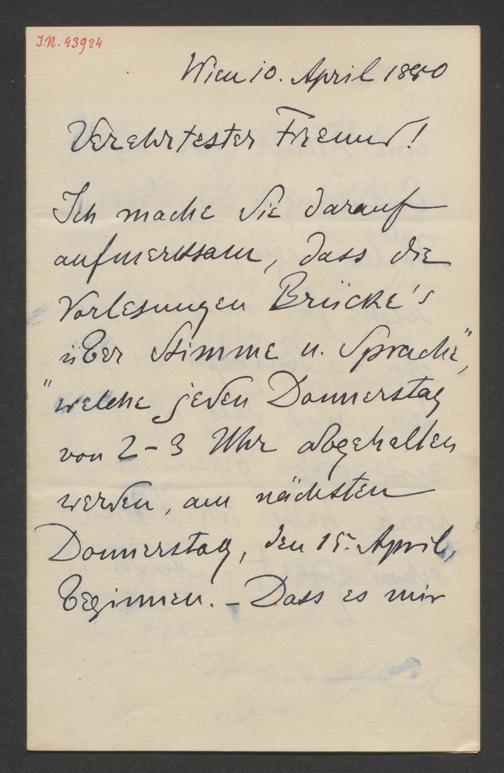 I.N. 43924
Wien 10. April 1880
Verehrtester Freund!
Ich mache Sie darauf
aufmerksam, dass die
Vorlesungen Brücke's
über Stimme u. Sprache",
"welche jeden Donnerstag
von 2-3 Uhr abgehalten
werden, am nächsten
Donnerstag, den 15. April,
beginnen. – Dass es mir